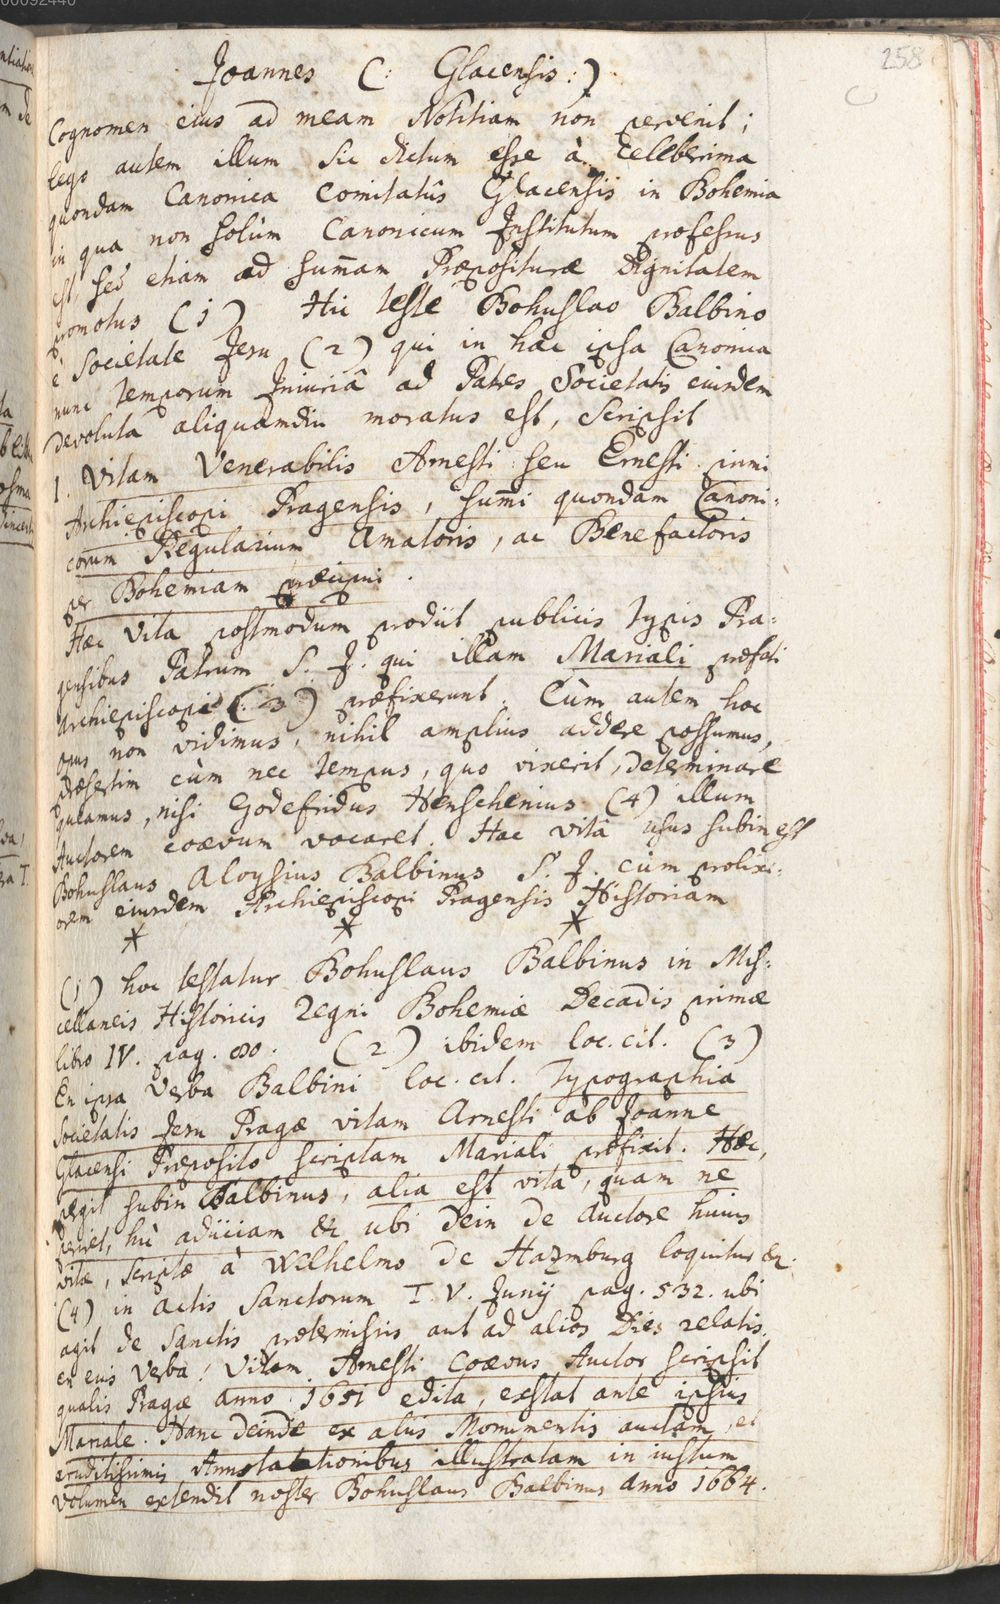 00092440
258
Joannes (: Glacensis :)
Cognomen eius ad meam Notitiam non pervenit;
lego autem illum sic dictum esse à Celeberima
quondam Canonica Comitatûs Glacensis in Bohemia
in qua non solùm Canonicum Institutum professus
est, sed etiam ad sum̃am Præposituræ Dignitatem
promotus (1) Hic teste Bohuslao Balbino
è Societate Jesu (2) qui in hac ipsa Canonica
nunc temporum Iniuriâ ad Patres Societatis eiusdem
devoluta aliquamdiu moratus est, scripsit
1. Vitam Venerabilis Arnesti seu Ernesti primi
Archiepiscopi Pragensis, sum̃i quondam Canoni:
corum Regularium Amatoris, ac Benefactoris
per Bohemiam præcipui.
Hæc Vita postmodum prodiit publicis Typis Pra:
gensibus Patrum S. J. qui illam Mariali præfati
Archiepiscopi (3) præfixerunt. Cùm autem hoc
opus non vidimus, nihil amplius addere possumus,
præsertim cùm nec tempus, quo vixerit, determinare
queamus, nisi Godefridus Henschenius (4) illum
Auctorem coævum vocaret. Hac vitâ usus subin est
Bohuslaus Aloysius Balbinus S. J. cùm prolixi:
orem eiusdem Archiepiscopi Pragensis Historiam
* * *
(1) hoc testatur Bohuslaus Balbinus in Mis:
cellaneis Historicis Regni Bohemiæ Decadis primæ
libro IV. pag. (2) ibidem loc. cit. (3)
En ipsa verba Balbini loc. cit. Typographia
Societatis Jesu Pragæ vitam Arnesti ab Joanne
Glacensi Præposito scriptam Mariali præfixit. Hæc,
pergit subin Balbinus, alia est vita, quam ne
periret, hic adiiciam &c ubi dein de Auctore huius
vitæ, scriptæ à Wilhelmo de Hazmburg loquitur &c.
(4) in actis Sanctorum T. V. Junij pag. 532. ubi
agit de Sanctis prætermissis aut ad alios Dies relatis.
en eius verba: Vitam Arnesti Coævus Auctor scripsit
qualis Pragæ anno 1651 edita, exstat ante ipsius
Mariale. Hanc deinde ex aliis Monumentis auctam, et
eruditissimis Annotationibus illustratam in iustum
volumen extendit noster Bohuslaus Balbinus anno 1664.